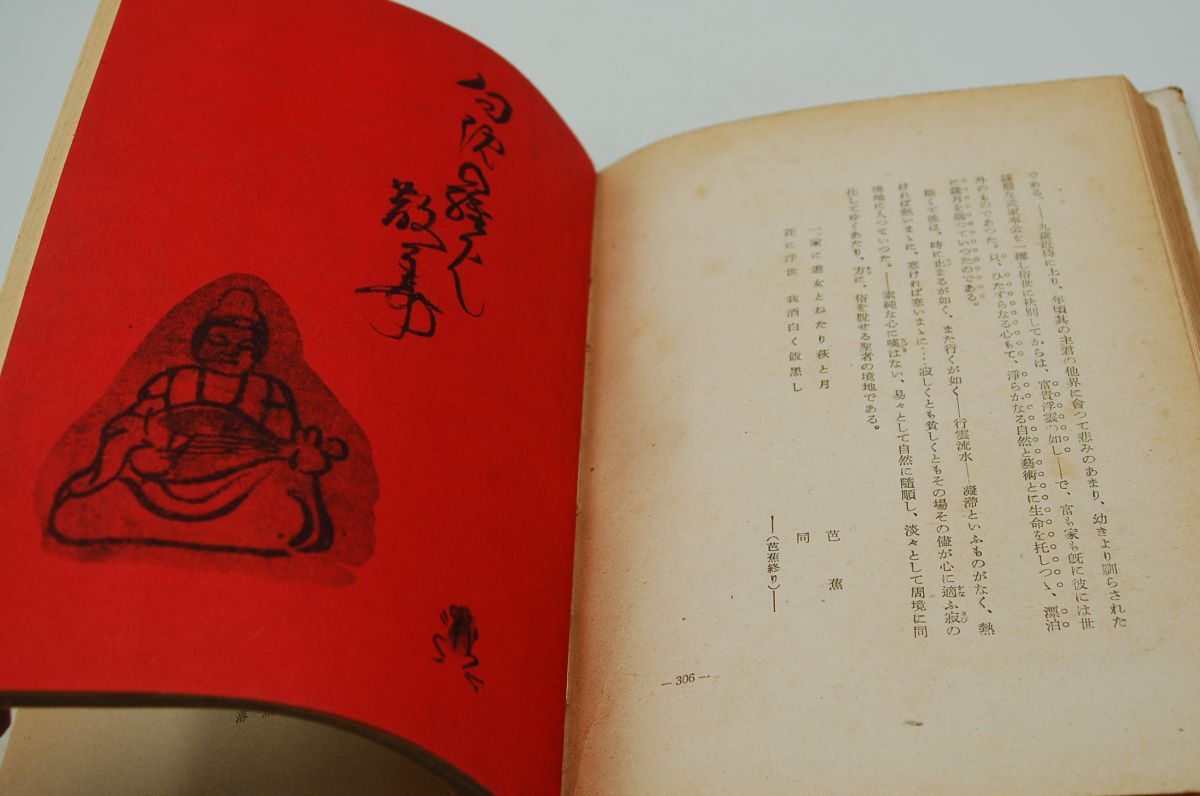 である。――九歳近侍に上り、年頃其の主君の他界に會つて悲みのあまり、幼きより馴らされた
武家奉公を一擲し俗世に袂別してからは、富貴浮雲の如し――で、富も家も既に彼には世
外のものであつた。只、ひたすらなる心もて、淨らかなる自然と藝術とに生命を托しつゝ、漂泊
に歳月を送つていつたのである。
斯くて彼は、時に止まるが如く、また行くが如く――行雲流水――凝滯といふものがなく、熱
ければ熱いまゝに、寒ければ寒いまゝに…寂しくとも貧しくともその場その儘が心に適ふ寂の
境地に入つていつた。――素純な心に嘆はない、易々として自然に隨順し、淡々として周境に同
化してゆくあたり、方に、俗を脫せる聖者の境地である。
一家に遊女もねたり萩と月 芭蕉
花に浮世 我酒白く飯黑し 同
――(芭蕉終り)――
― 306 ―